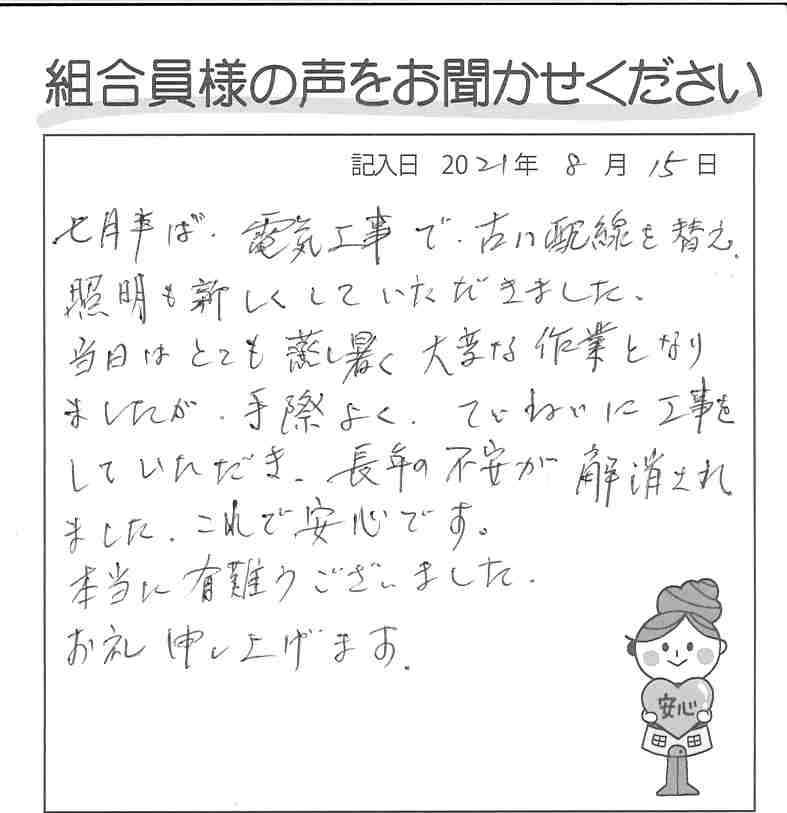 組合員様の声をお聞かせください
記入日 2021年 8月 15日
七月半ば、電気工事で、古い配線を替え、
照明も新しくしていただきました。
当日はとても蒸し暑く大変な作業となり
ましたが、手際よく、ていねいに工事を
していただき、長年の不安が解消され
ました。これで安心です。
本当に有難うございました。
お礼申し上げます。
安心